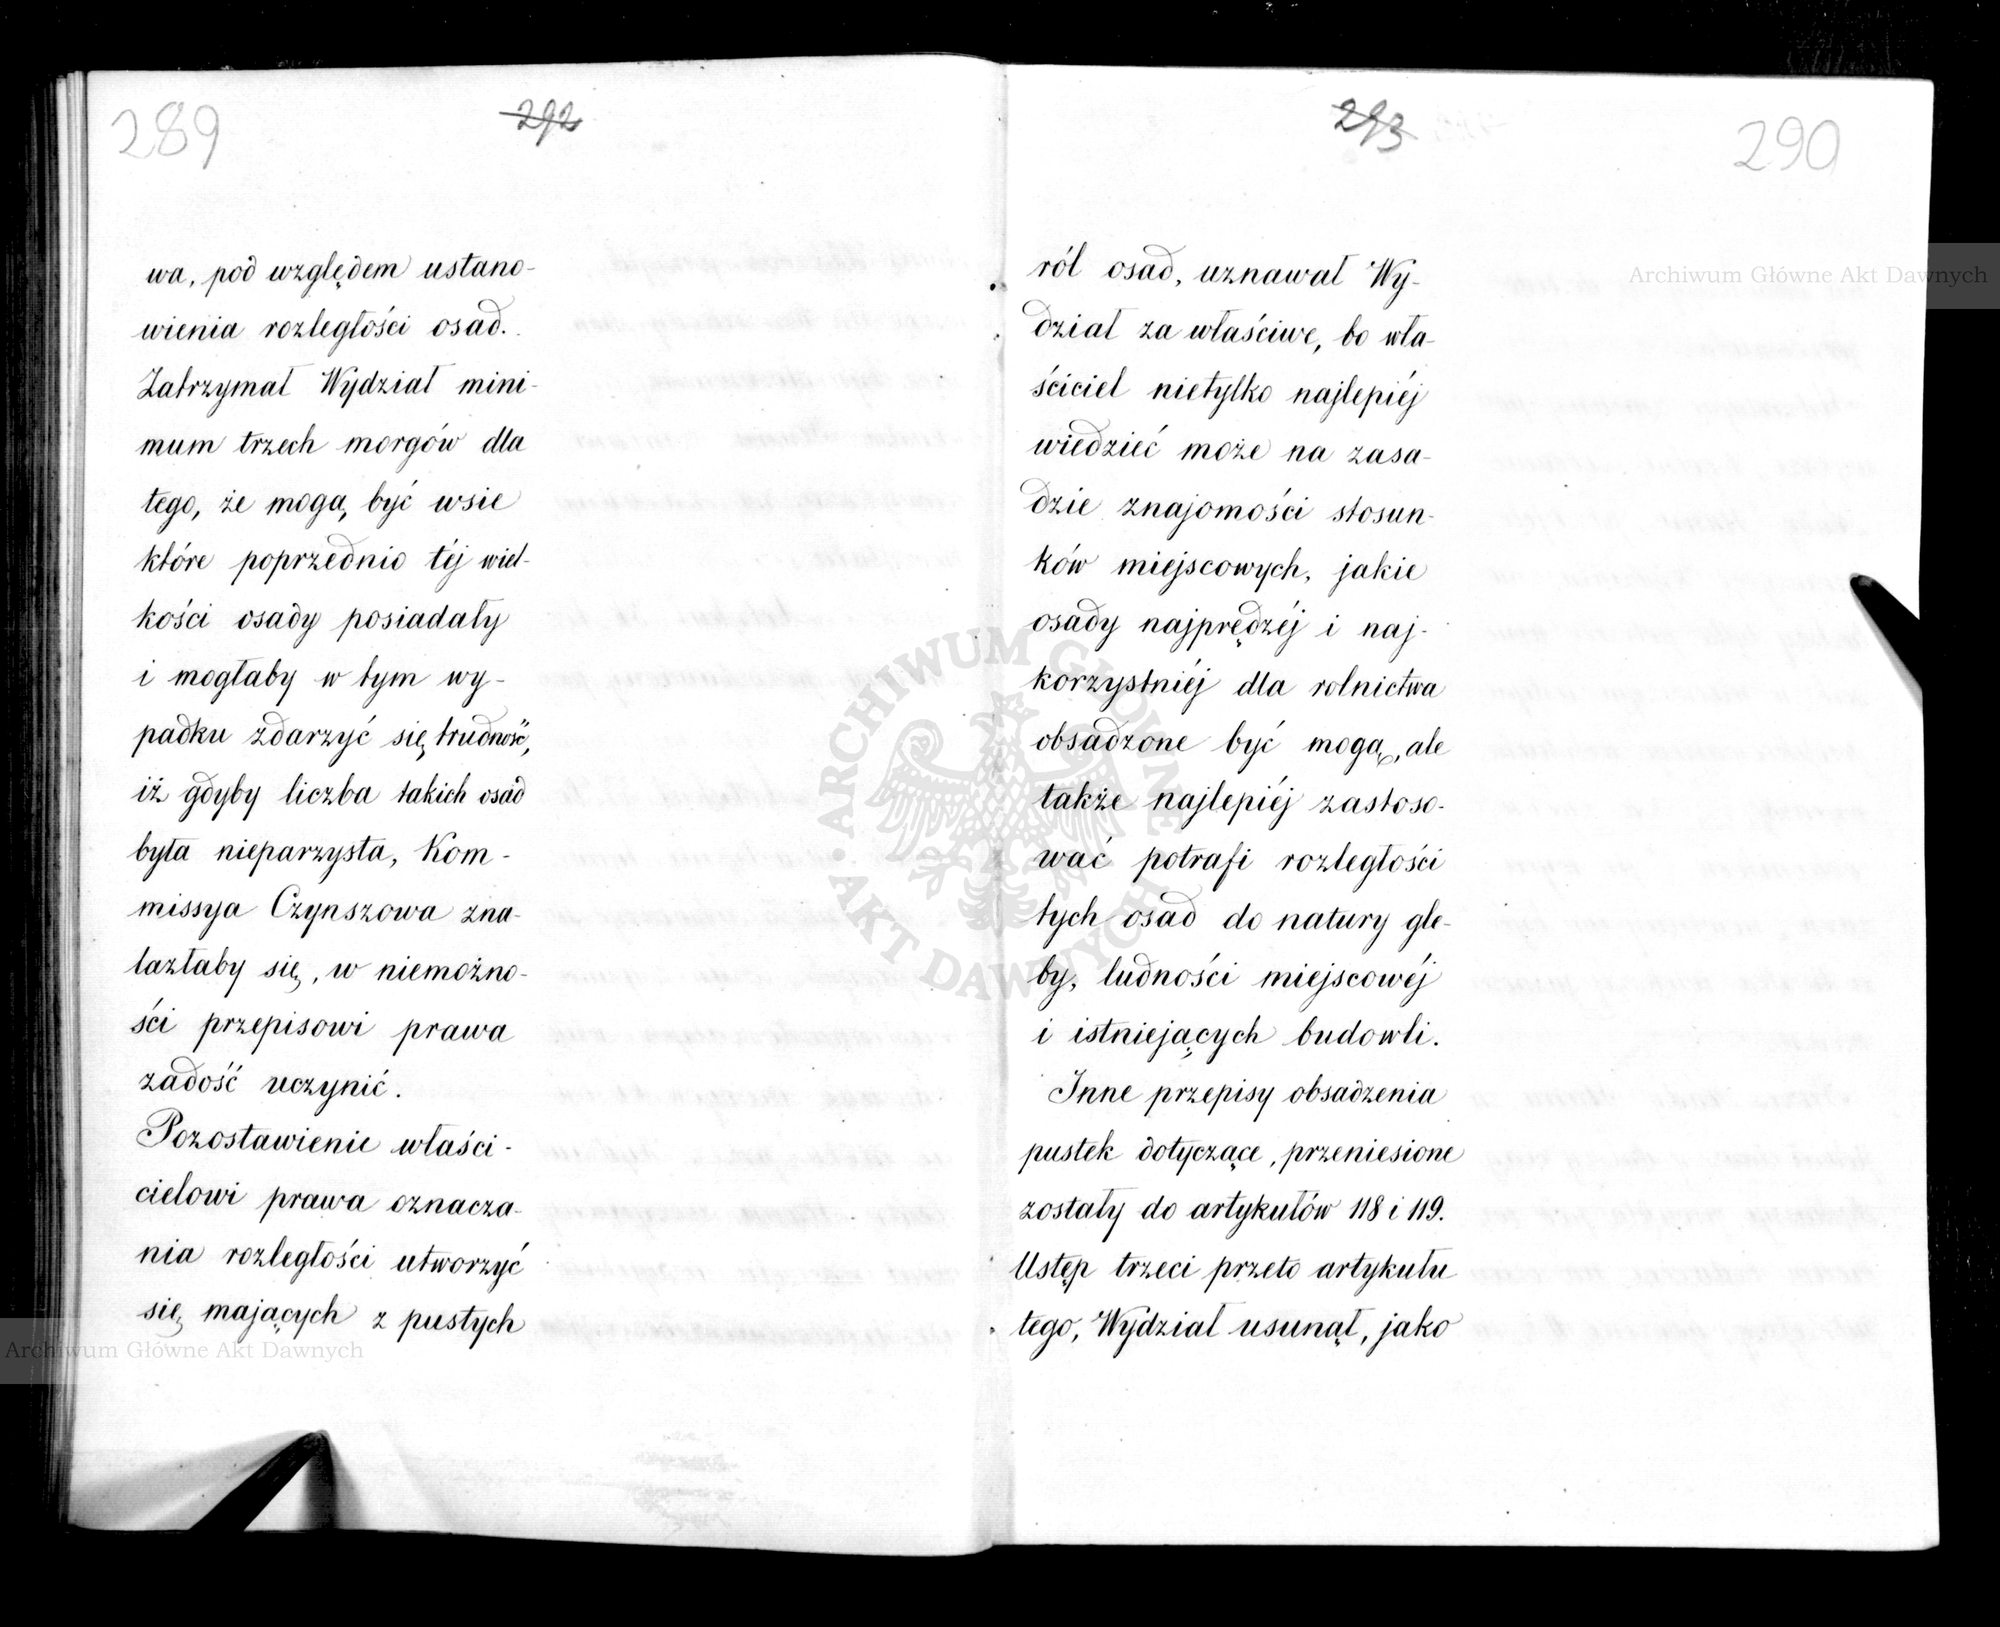 289
292
wa, pod względem ustano-
wienia rozległości osad.
Zatrzymał Wydział mini-
mum trzech morgów dla
tego, że mogą być wsie
które poprzednio téj wiel-
kości osady posiadały
i mogłaby w tym wy-
padku zdarzyć się trudność,
iż gdyby liczba takich osad
była nieparzysta, Kom-
missya Czynszowa zna-
lazłaby się, w niemożno-
ści przepisowi prawa
zadość uczynić.
Pozostawienie właści-
cielowi prawa oznacza-
nia rozległości utworzyć
się mających z pustych
293
290
ról osad, uznawał Wy-
dział za właściwe, bo wła-
ściciel nietylko najlepiéj
wiedzieć może na zasa-
dzie znajomości stosun-
ków miejscowych, jakie
osady najprędzéj i naj-
korzystniéj dla rolnictwa
obsadzone być mogą, ale
także najlepiéj zastoso-
wać potrafi rozległości
tych osad do natury gle-
by, ludności miejscowéj
i istniejących budowli.
Inne przepisy obsadzenia
pustek dotyczące, przeniesione
zostały do artykułów 118 i 119.
Ustęp trzeci przeto artykułu
tego, Wydział usunął, jako
Archiwum Główne Akt Dawnych
Archiwum Główne Akt Dawnych
ARCHIWUM GŁÓWNE
AKT DAWNYCH